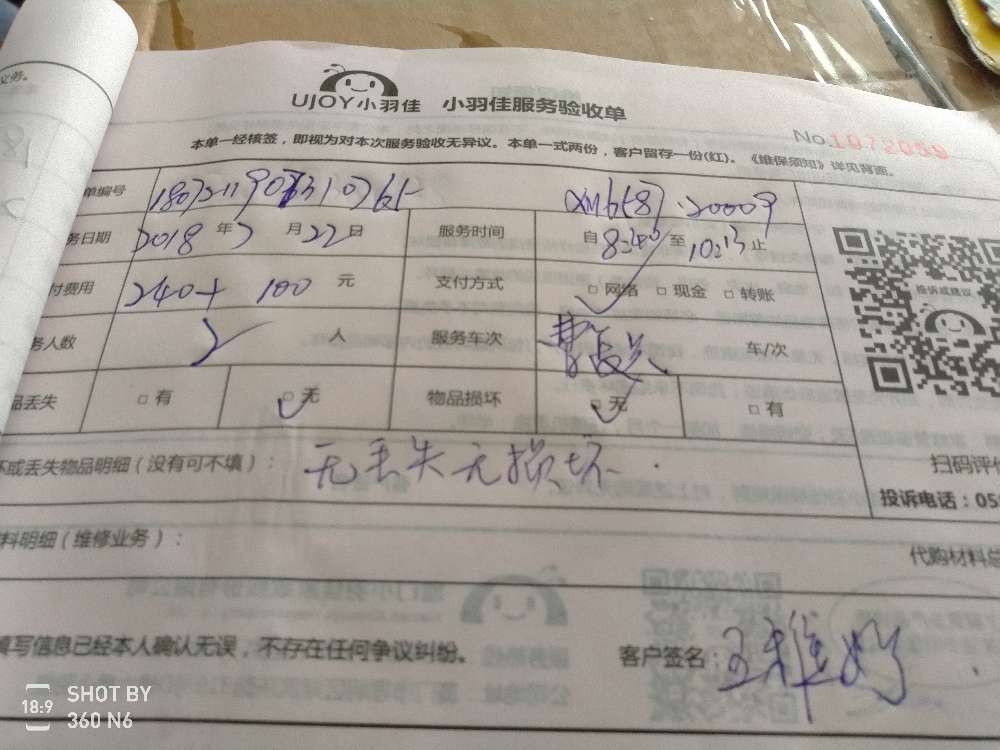 UJOY小羽佳 小羽佳服务验收单
No.1072059
本单一经核签，即视为对本次服务验收无异议。本单一式两份，客户留存一份(红)。《维保须知》详见背面。
单编号
务日期 2018 年 月 22 日 服务时间 自 至 止
付费用 240+ 100 元 支付方式 □ 网络 □ 现金 □ 转账
务人数 2 人 服务车次 车/次
品丢失 □ 有 □ 无 物品损坏 □ 无 □ 有
投诉或建议
坏或丢失物品明细（没有可不填）： 无丢失无损坏.
扫码评价
投诉电话：05
料明细（维修业务）：
代购材料总
填写信息已经本人确认无误，不存在任何争议纠纷。 客户签名：
SHOT BY
360 N6
18:9